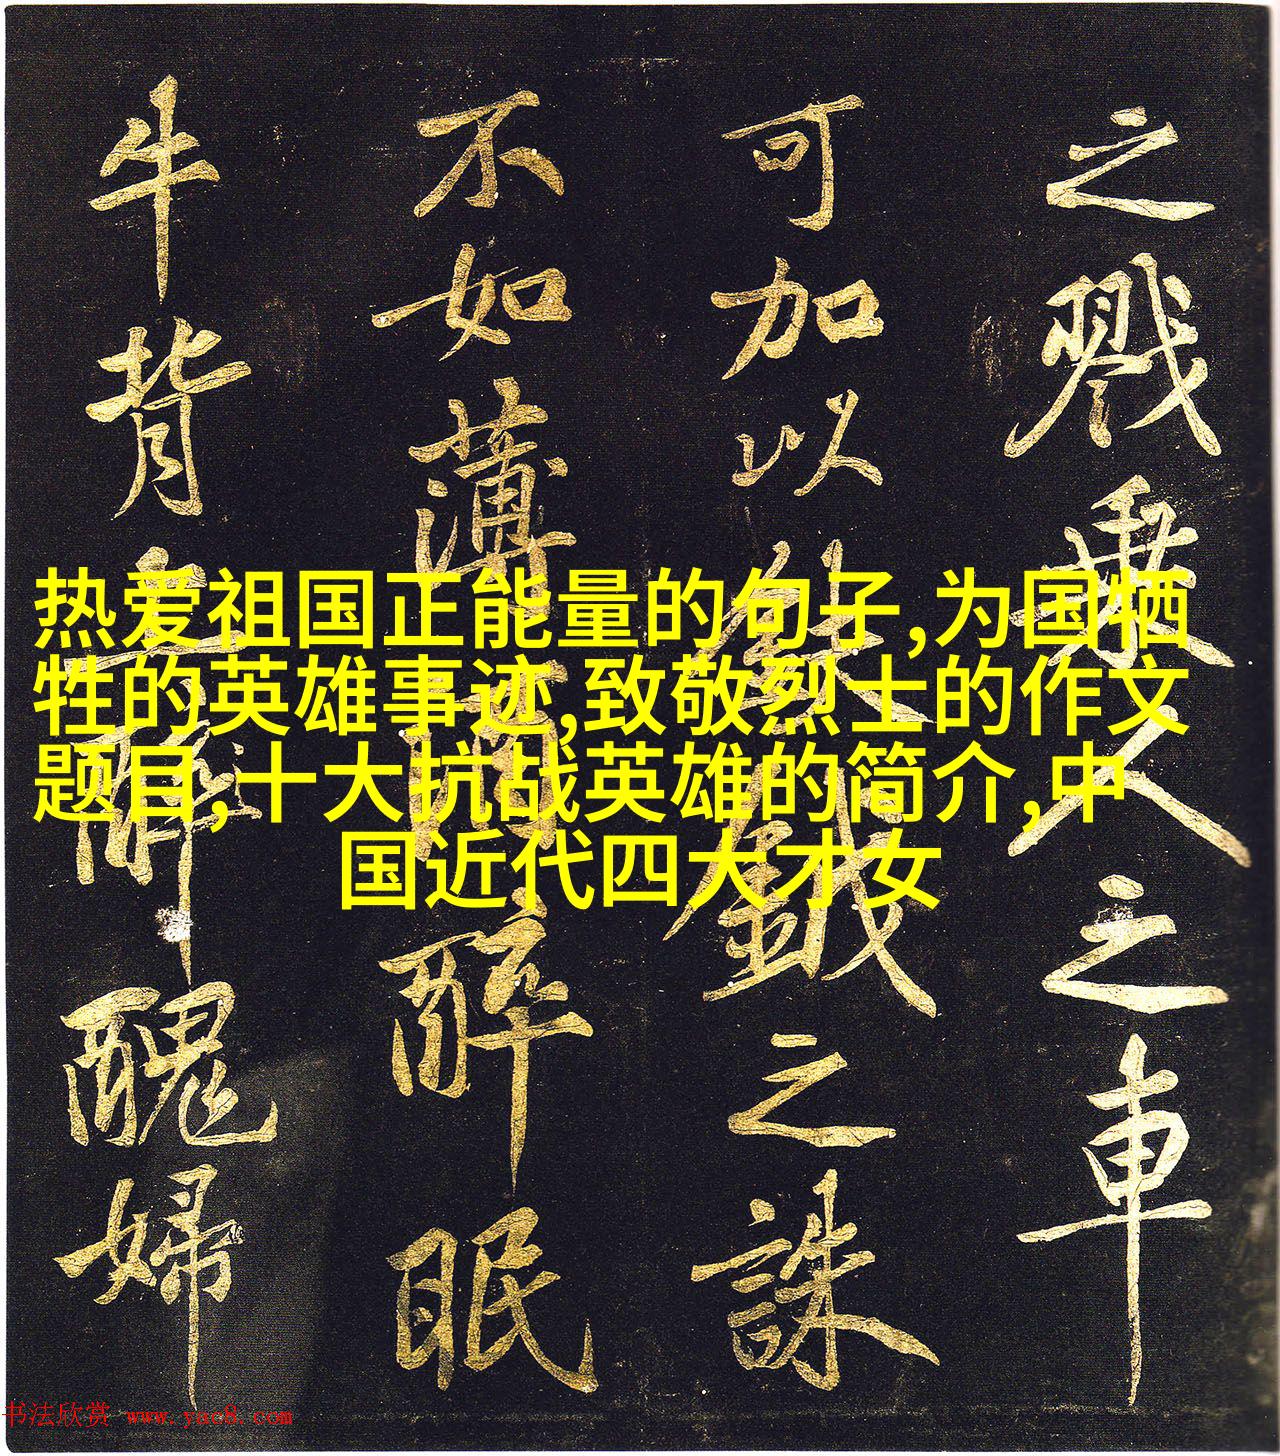 热爱祖国正能量的句子,为国牺
牲的英雄事迹,致敬烈士的作文
题目,十大抗战英雄的简介,中
国近代四大才女
之戮乘人之車
可加以鈇鉞之誅
不如薄醉眠
牛背上醉醜婦
书法欣赏 www.yac8.com